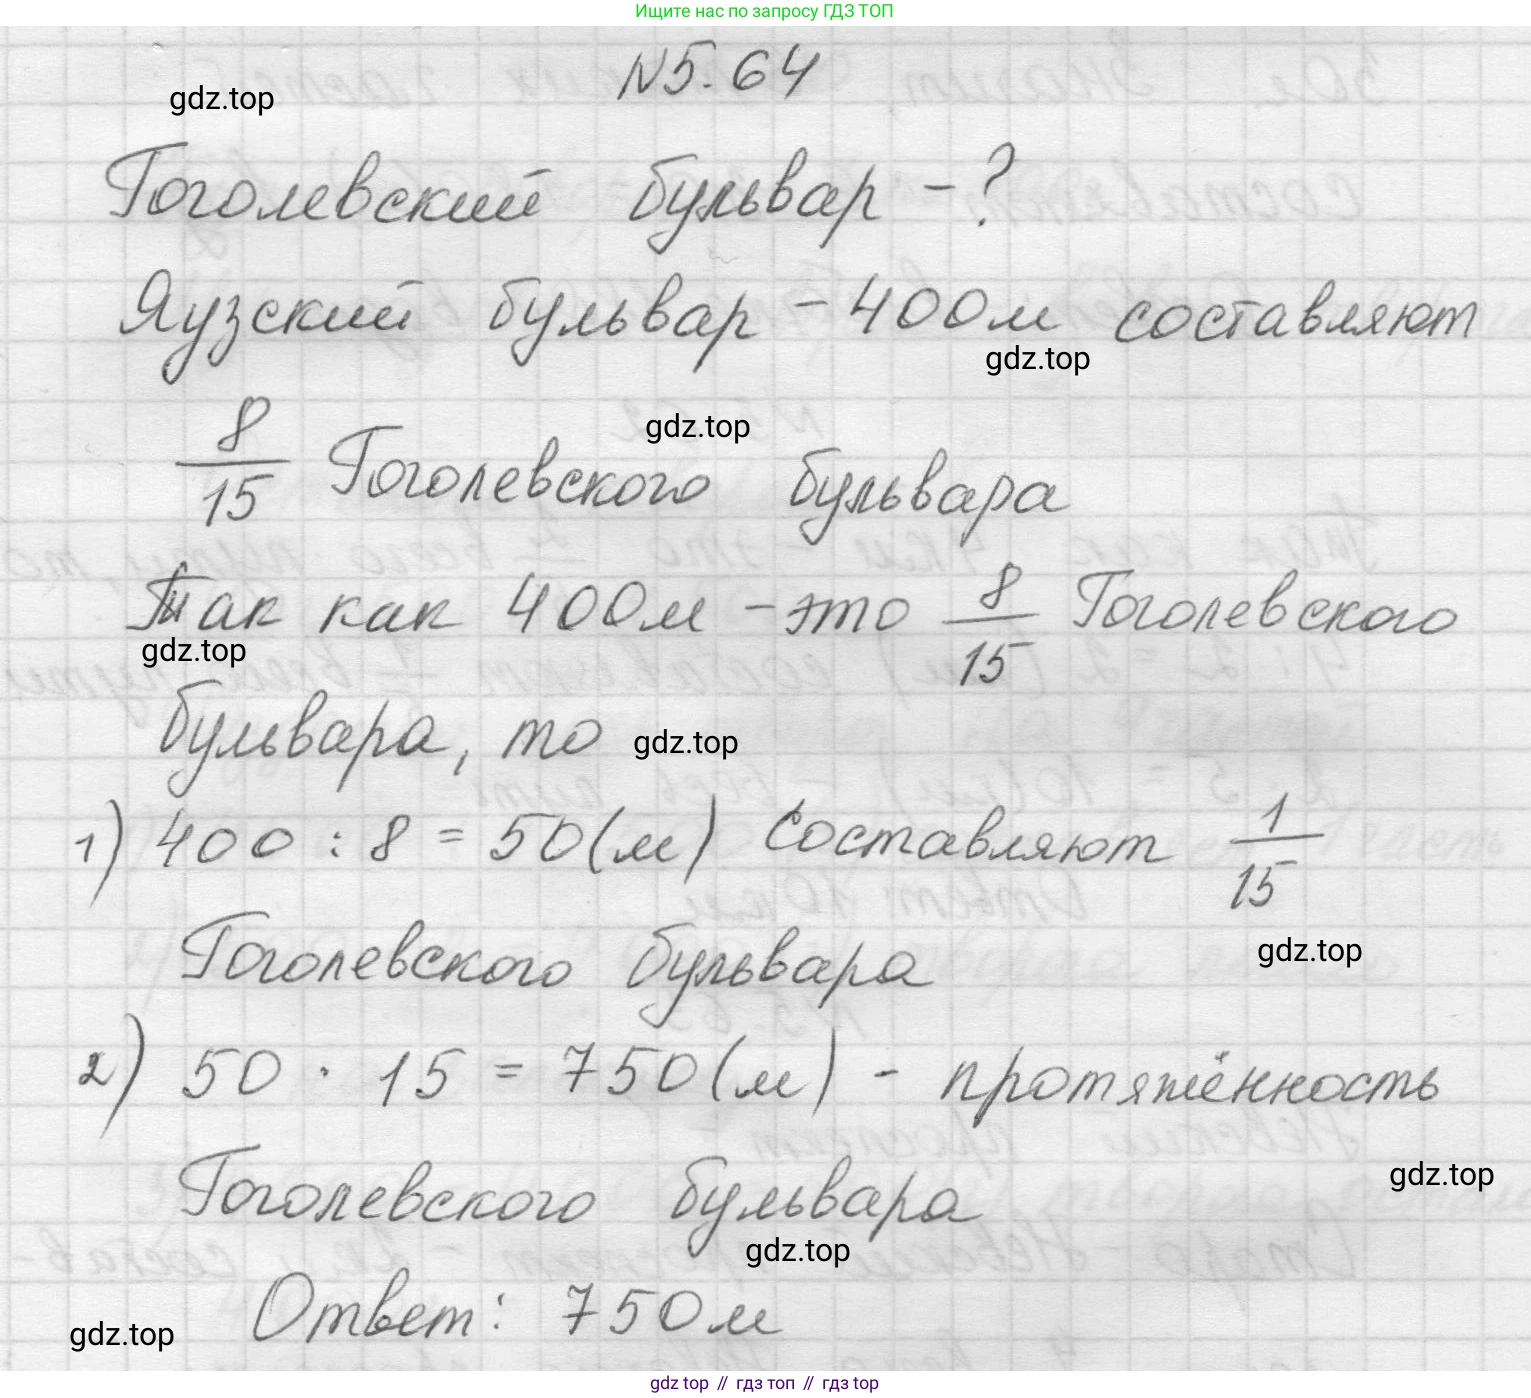 Ищите нас по запросу ГДЗ ТОП
N5.64
gdz.top
Гоголевский бульвар - ?
Яузский бульвар - 400м составляют
gdz.top
8/15 Гоголевского бульвара
gdz.top
Так как 400м - это 8/15 Гоголевского
gdz.top
бульвара, то
gdz.top
1) 400 : 8 = 50(м) составляют 1/15
Гоголевского бульвара
gdz.top
2) 50 · 15 = 750(м) - протяжённость
Гоголевского бульвара
gdz.top
gdz.top
Ответ: 750м
gdz.top
gdz top // гдз топ // гдз top